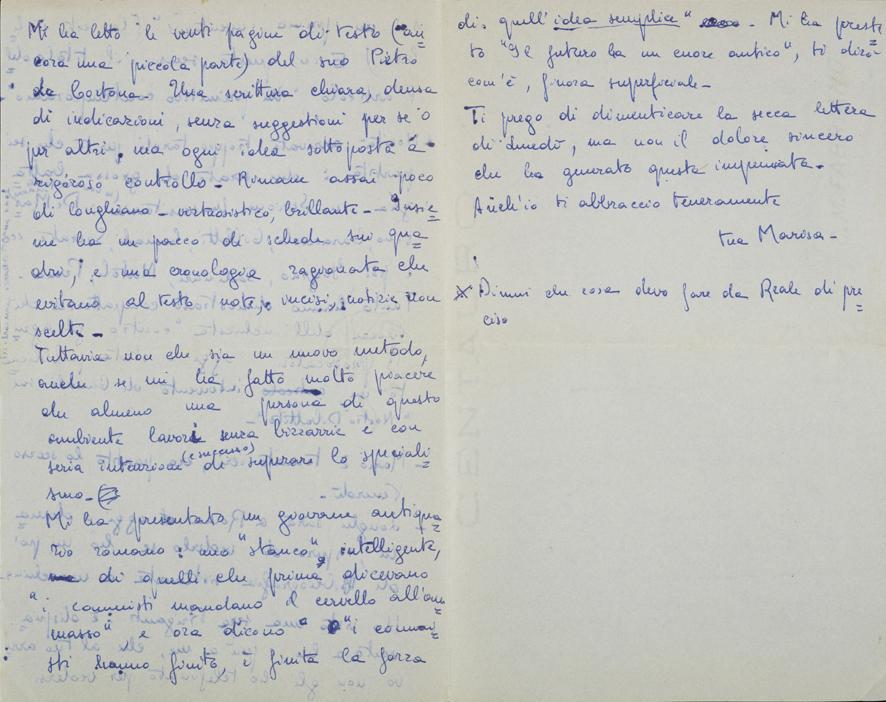 Mi ha letto le venti pagine di testo (an=
cora una piccola parte) del suo Pietro
da Cortona. Una scrittura chiara, densa
di indicazioni, senza suggestioni per se o
per altri, ma ogni idea sottoposta a
rigoroso controllo - Rimane assai poco
di longhiano - virtuosistico, brillante - Insie=
me ha un pacco di schede sui qua=
dri, e una cronologia ragionata che
evitano al testo note, incisi, notizie non
scelte -
Tuttavia non che sia un nuovo metodo,
anche se mi ha fatto molto piacere
che almeno una persona di questo
ambiente lavori senza bizzarrie e con
seria intenzione (e successo) di superare lo speciali=
smo -
Mi ha presentato un giovane antiqua=
rio romano: uno "stanco", intelligente,
di quelli che prima dicevano
"i comunisti mandano il cervello all'am=
masso" e ora dicono "i comuni=
sti hanno finito, è finita la forza
di quell'idea semplice" - Mi ha presta=
to "Il futuro ha un cuore antico", ti dirò
com'è, finora superficiale -
Ti prego di dimenticare la secca lettera
di lunedì, ma non il dolore sincero
che ha generato questa impennata -
Anch'io ti abbraccio teneramente
tua Marisa -
* Dimmi che cosa devo fare da Reale di pre=
ciso